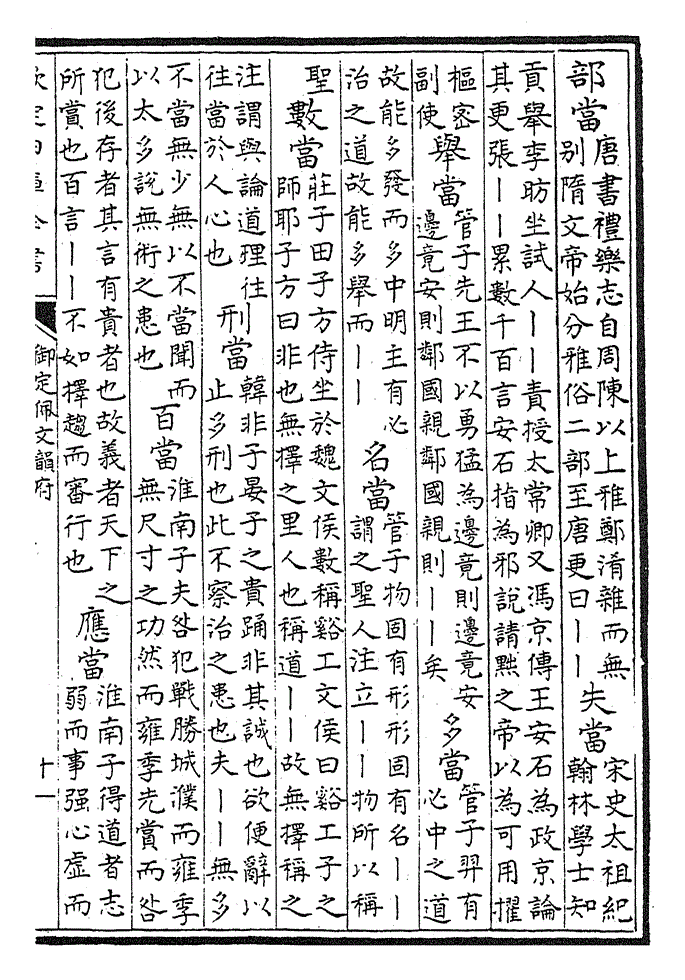 部當 唐書禮樂志自周陳以上雅鄭淆雜而無
別隋文帝始分雅俗二部至唐更曰丨丨
失當 宋史太祖紀
翰林學士知
貢舉李昉坐試人丨丨責授太常卿又馮京傳王安石為政京論
其更張丨丨累數千百言安石指為邪說請黜之帝以為可用擢
樞密
副使
舉當 管子先王不以勇猛為邊竟則邊竟安
邊竟安則鄰國親鄰國親則丨丨矣
多當 管子羿有
必中之道
故能多發而多中明主有必
治之道故能多舉而丨丨
名當 管子物固有形形固有名丨丨
謂之聖人注立丨丨物所以稱
聖
數當 莊子田子方侍坐於魏文侯數稱谿工文侯曰谿工子之
師耶子方曰非也無擇之里人也稱道丨丨故無擇稱之
注謂與論道理往
往當於人心也
刑當 韓非子晏子之貴踊非其誠也欲便辭以
止多刑也此不察治之患也夫丨丨無多
不當無少無以不當聞而
以太多說無術之患也
百當 淮南子夫咎犯戰勝城濮而雍季
無尺寸之功然而雍季先賞而咎
犯後存者其言有貴者也故義者天下之
所賞也百言丨丨不如擇趨而審行也
應當 淮南子得道者志
弱而事强心虛而
欽定四庫全書
御定佩文韻府
十一